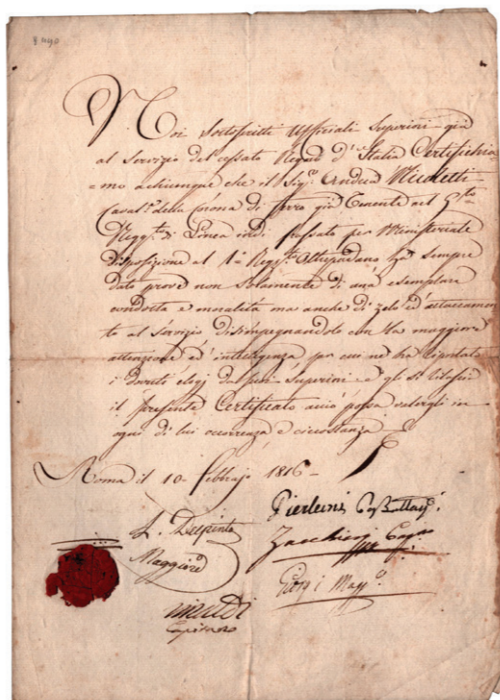 Noi Sottoscritti Uffiziali Superiori già
al Servizio del cessato Regno d'Italia Certifichia
=mo a chiunque che il Sig.r Andrea Nicoletti
Caval.re della Corona di ferro già Tenente nel 5.to
Regg.to di Linea indi passato per Ministeriale
disposizione al 1.o Regg.to Oltrepadano ha sempre
dato prove non solamente di una esemplare
condotta e moralità ma anche di zelo ed attaccamen
to al Servizio disimpegnandolo con la maggiore
attenzione ed intelligenza per cui ne ha riportato
i dovuti elogj dai suoi Superiori e gli si rilascia
il presente Certificato acciò possa valergli in
ogni di lui occorrenza e circostanza
Roma il 10 febbrajo 1816
Pierleoni
L. Maggiore
Zacchieri
Giorgi Magg.e